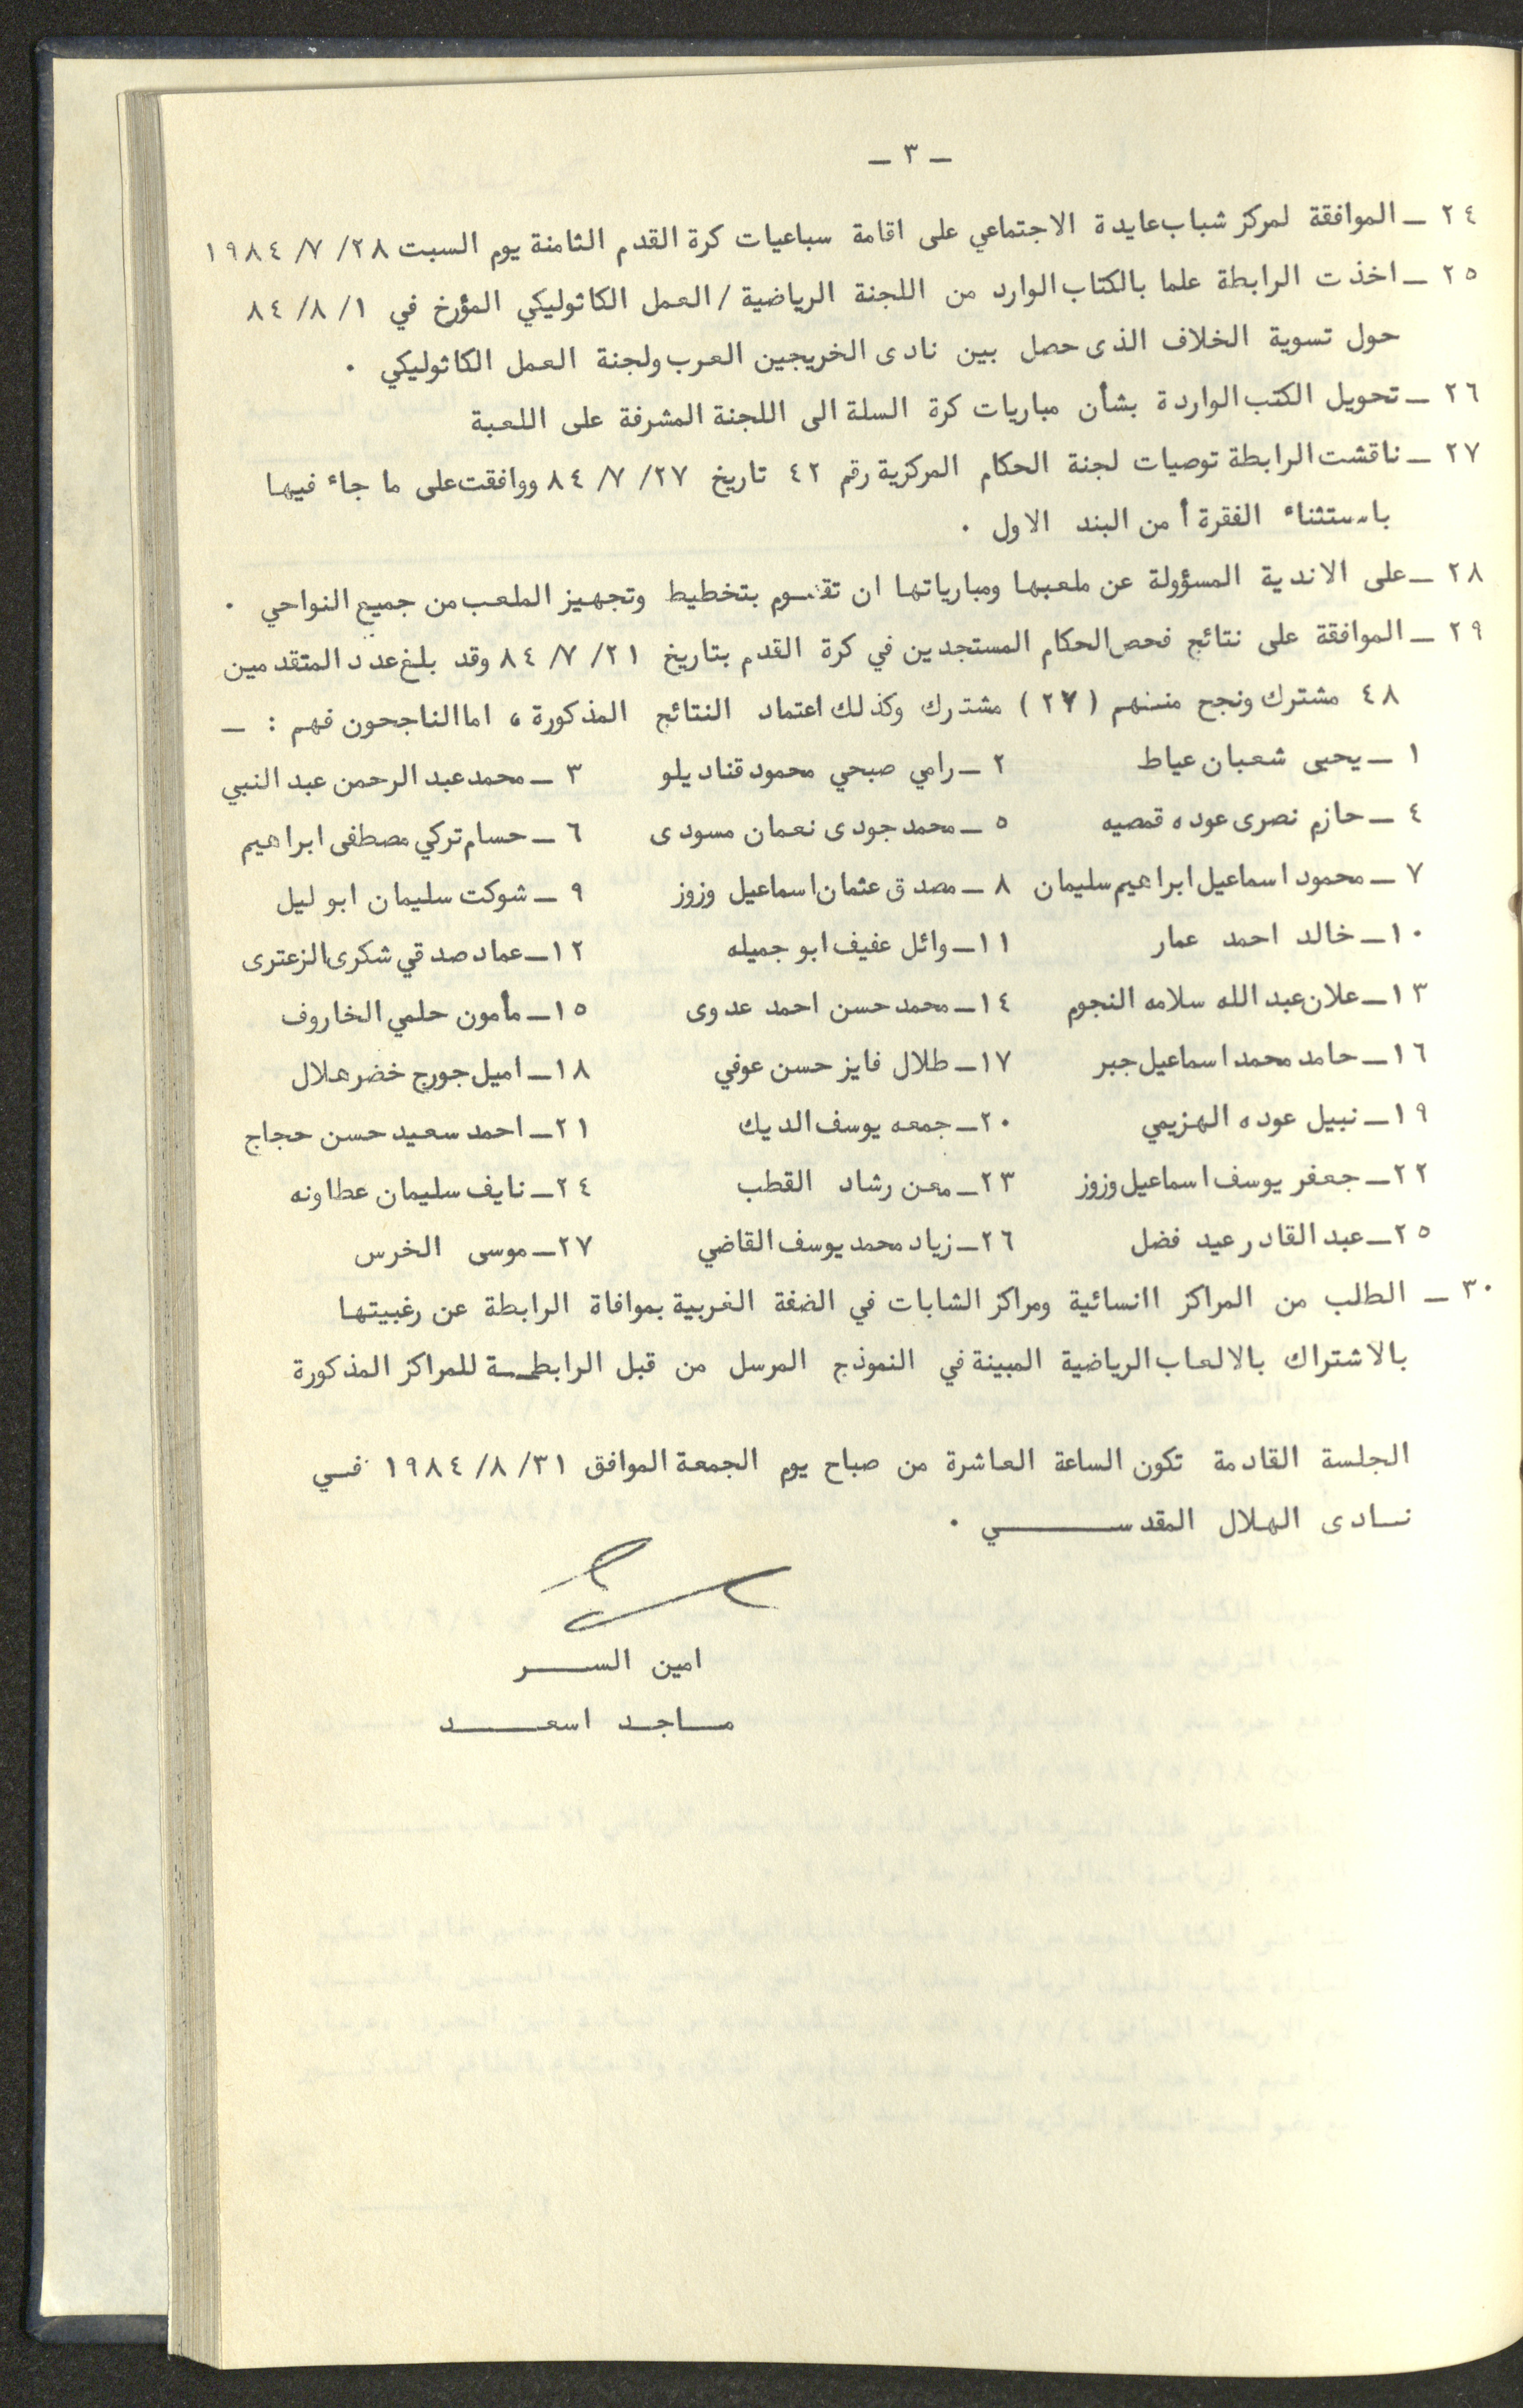 ـ ٣ ـ
٢٤ ـ الموافقة لمركز شباب عايدة الاجتماعي على اقامة سباعيات كرة القدم الثامنة يوم السبت ٢٨/ ٧/ ١٩٨٤
٢٥ ـ اخذت الرابطة علما بالكتاب الوارد من اللجنة الرياضية / العمل الكاثوليكي المؤرخ في ١/ ٨/ ٨٤
حول تسوية الخلاف الذى حصل بين نادى الخريجين العرب ولجنة العمل الكاثوليكي .
٢٦ ـ تحويل الكتب الواردة بشأن مباريات كرة السلة الى اللجنة المشرفة على اللعبة
٢٧ ـ ناقشت الرابطة توصيات لجنة الحكام المركزية رقم ٤٢ تاريخ ٢٧/ ٧/ ٨٤ ووافقت على ما جاء فيها
باستثناء الفقرة أ من البند الاول .
٢٨ ـ على الاندية المسؤولة عن ملعبها ومبارياتها ان تقـوم بتخطيط وتجهيز الملعب من جميع النواحي .
٢٩ ـ الموافقة على نتائج فحص الحكام المستجدين في كرة القدم بتاريخ ٢١/ ٧/ ٨٤ وقد بلغ عدد المتقدمين
٤٨ مشترك ونجح منهم (٢٧) مشترك وكذلك اعتماد النتائج المذكورة ، اما الناجحون فهم : ـ
١ ـ يحيى شعبان عياط ٢ ـ رامي صبحي محمود قناديلو ٣ ـ محمد عبد الرحمن عبد النبي
٤ ـ حازم نصرى عوده قمصيه ٥ ـ محمد جودى نعمان مسودى ٦ ـ حسام تركي مصطفى ابراهيم
٧ ـ محمود اسماعيل ابراهيم سليمان ٨ ـ مصدق عثمان اسماعيل وزوز ٩ ـ شوكت سليمان ابو ليل
١٠ ـ خالد احمد عمار ١١ ـ وائل عفيف ابو جميله ١٢ ـ عماد صدقي شكرى الزعترى
١٣ ـ علان عبد الله سلامه النجوم ١٤ ـ محمد حسن احمد عدوى ١٥ ـ مأمون حلمي الخاروف
١٦ ـ حامد محمد اسماعيل جبر ١٧ ـ طلال فايز حسن عوفي ١٨ ـ اميل جورج خضر هلال
١٩ ـ نبيل عوده الهزيمي ٢٠ ـ جمعه يوسف الديك ٢١ ـ احمد سعيد حسن حجاج
٢٢ ـ جعفر يوسف اسماعيل وزوز ٢٣ ـ معن رشاد القطب ٢٤ ـ نايف سليمان عطاونه
٢٥ ـ عبد القادر عيد فضل ٢٦ ـ زياد محمد يوسف القاضي ٢٧ ـ موسى الخرس
٣٠ ـ الطلب من المراكز اانسائية ومراكز الشابات في الضفة الغربية بموافاة الرابطة عن رغبيتها
بالاشتراك بالالعاب الرياضية المبينة في النموذج المرسل من قبل الرابطـة للمراكز المذكورة
الجلسة القادمة تكون الساعة العاشرة من صباح يوم الجمعة الموافق ٣١/ ٨/ ١٩٨٤ فـي
نـادى الهلال المقدسـي .
امين السـر
مـاجد اسعـد